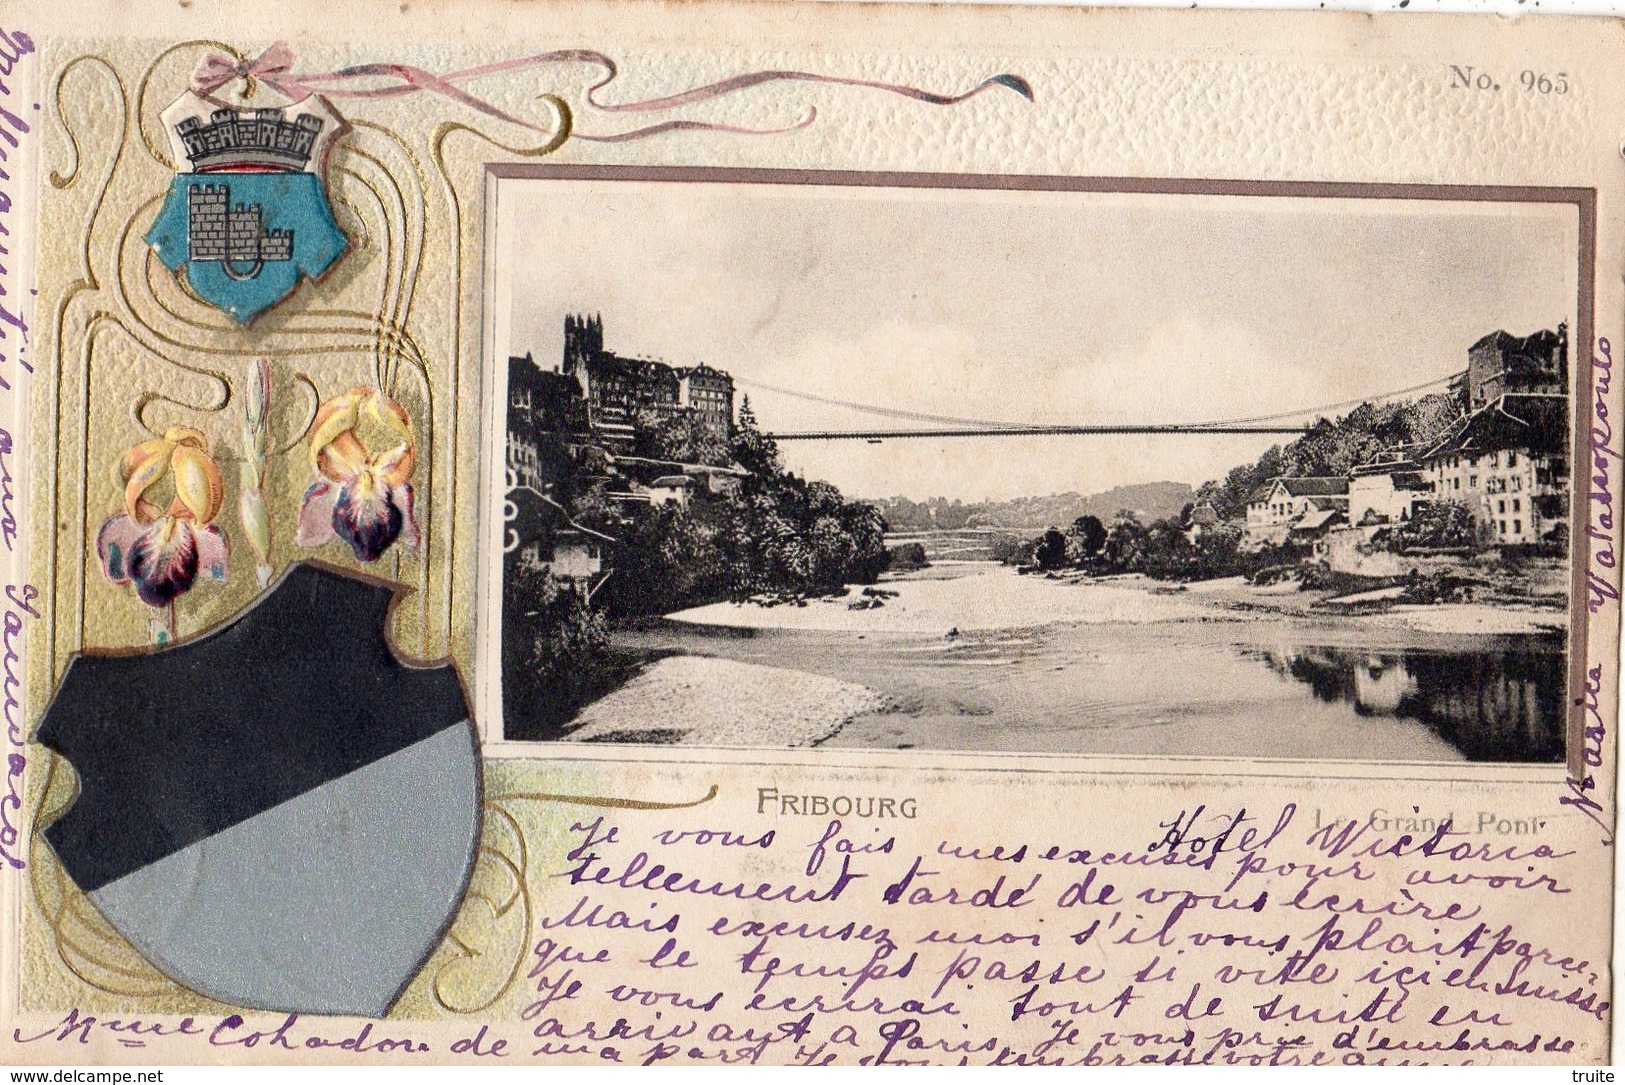 No. 965
FRIBOURG
Le Grand Pont
Hôtel Wictoria
Je vous fais mes excuses pour avoir
tellement tardé de vous écrire
Mais excusez moi s'il vous plait parce-
que le temps passe si vite ici en Suisse
Je vous ecrirai tout de suite en
arrivant a Paris. Je vous prie d'embrasse
Mme Cohadon de ma part Je vous embrasse votre
Marica Valassopoulo
aux
delcampe.net
truite